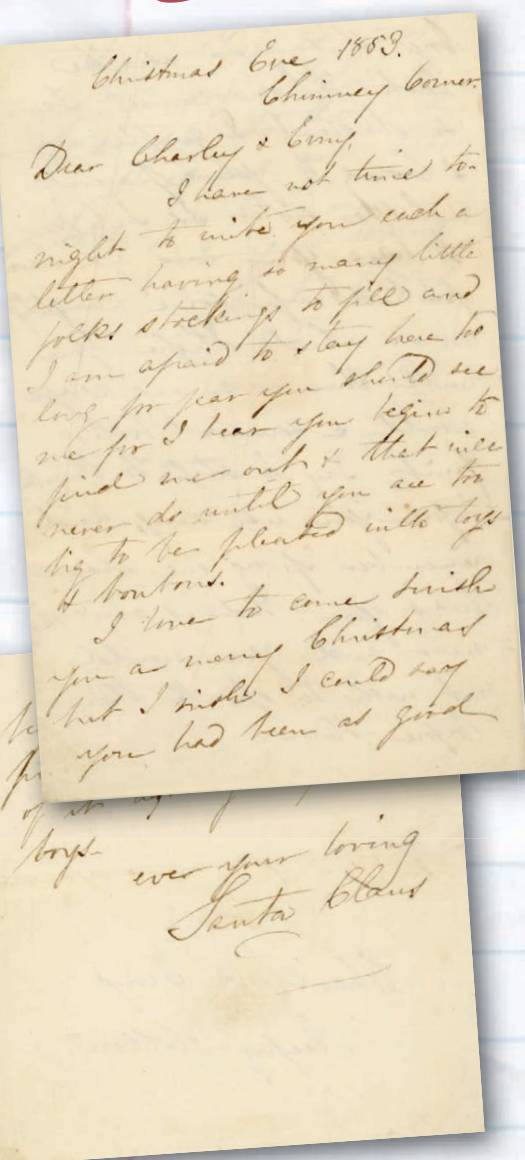 Christmas Eve 1853.
Chimney Corner.
Dear Charley & Erny.
I have not time to-
night to write you each a
letter having so many little
folks stockings to fill and
I am afraid to stay here too
long for fear you should see
me for I hear you begin to
find me out & that will
never do until you are too
big to be pleased with toys
& bonbons.
I love to come & wish
you a merry Christmas
but I wish I could say
you had been as good
of it
boys.
ever your loving
Santa Claus